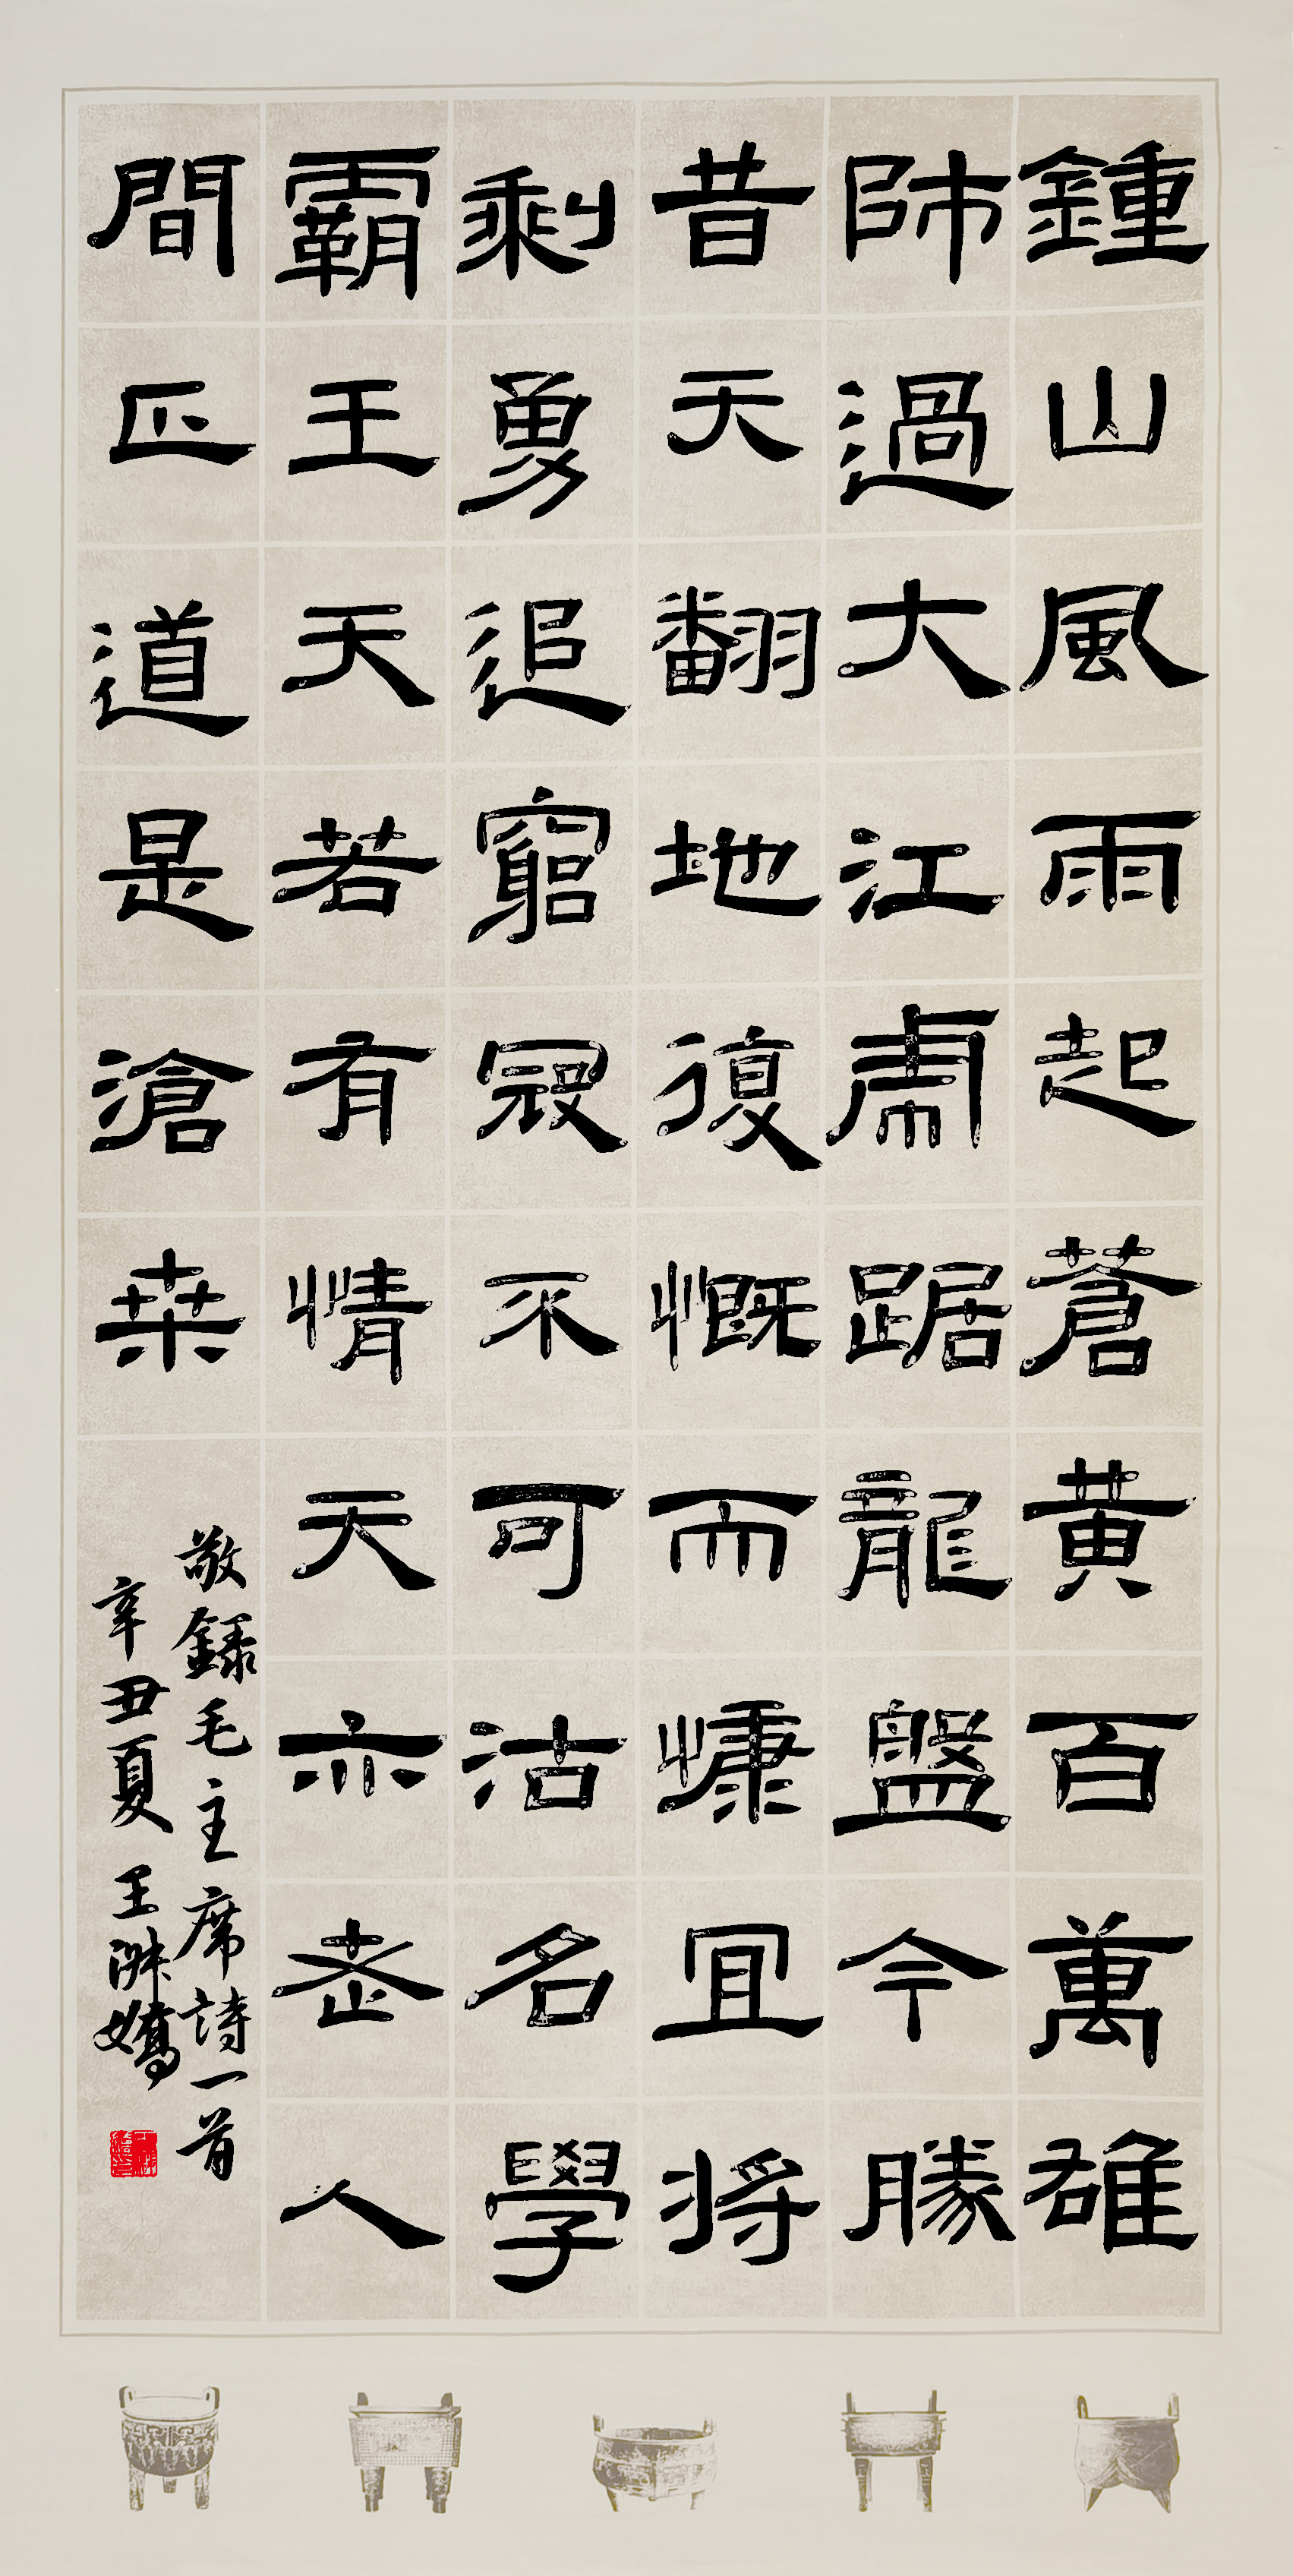 鍾山風雨起蒼黃百萬雄
師過大江虎踞龍盤今勝
昔天翻地復慨而慷宜將
剩勇追窮寇不可沽名學
霸王天若有情天亦老人
間正道是滄桑
敬錄毛主席詩一首
辛丑夏王嬌